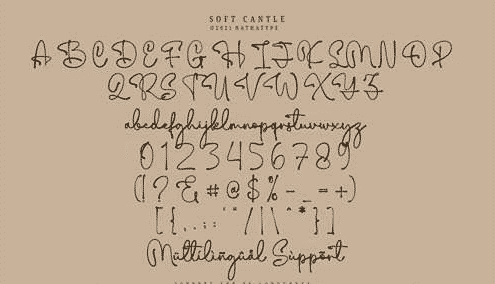 SOFT CANTLE
©2021 NATHATYPE
A B C D E F G H I J K L M N O P
Q R S T U V W X Y Z
abcdefghijklmnopqrstuvwxyz
0 1 2 3 4 5 6 7 8 9
( ! ? & # @ $ % - _ = + )
[ { , . ; : ' " / | \ ^ * } ]
Mültilingüâl Süppõrt